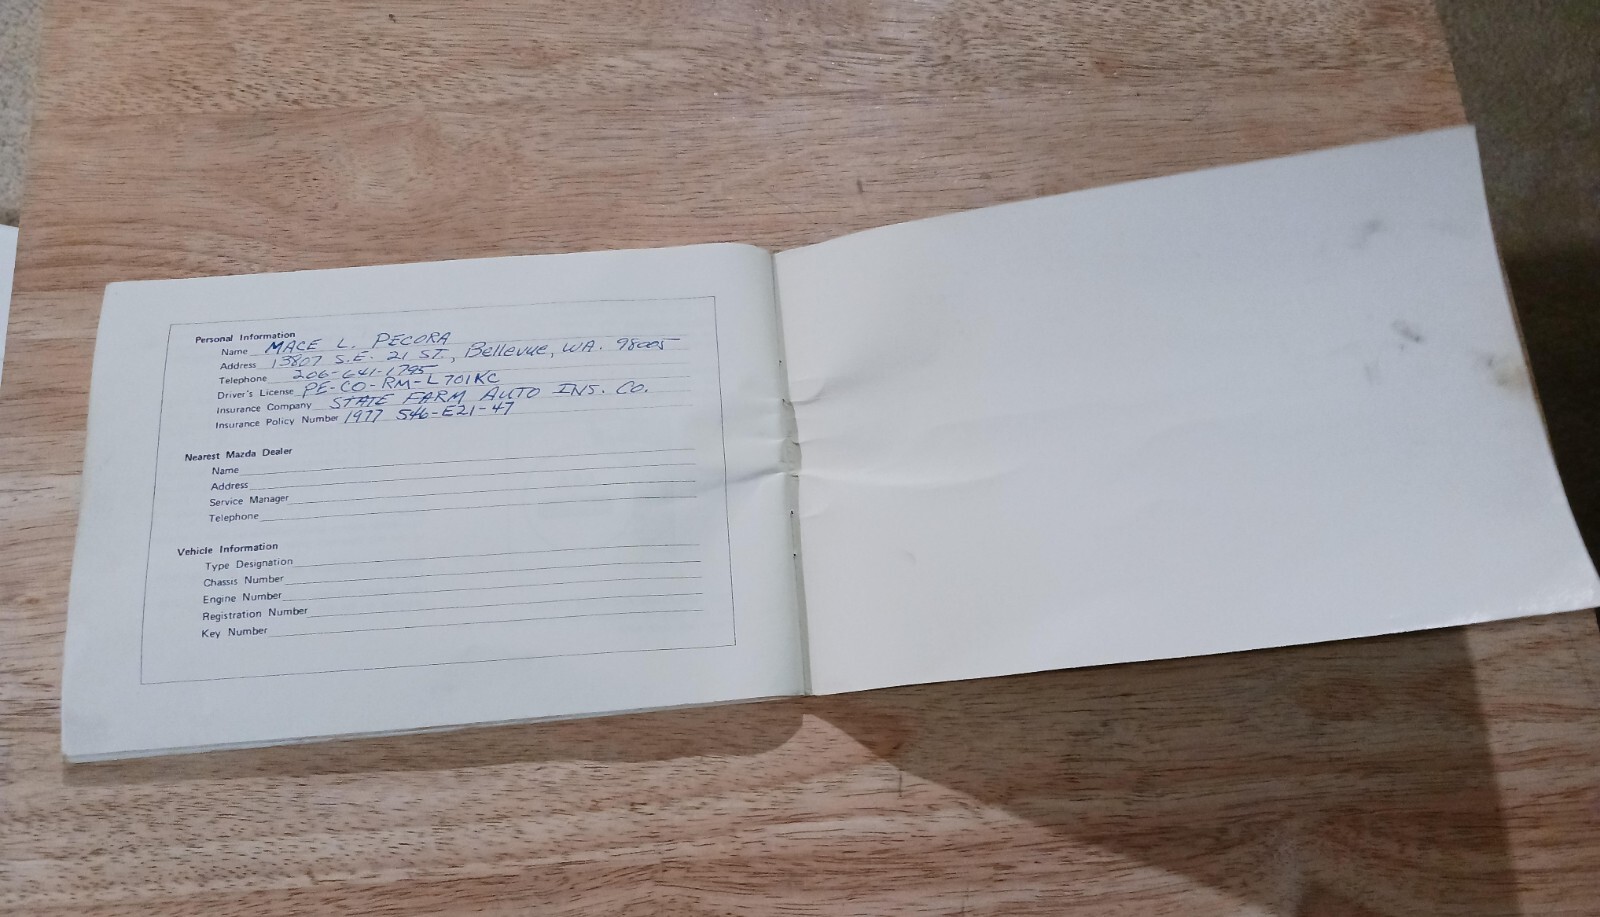 Personal Information
Name MACE L. PECORA
Address 13807 S.E. 21 ST., Bellevue, WA. 98005
Telephone 206-641-1795
Driver's License PE-CO-RM-L701KC
Insurance Company STATE FARM AUTO INS. CO.
Insurance Policy Number 1977 546-E21-47
Nearest Mazda Dealer
Name
Address
Service Manager
Telephone
Vehicle Information
Type Designation
Chassis Number
Engine Number
Registration Number
Key Number